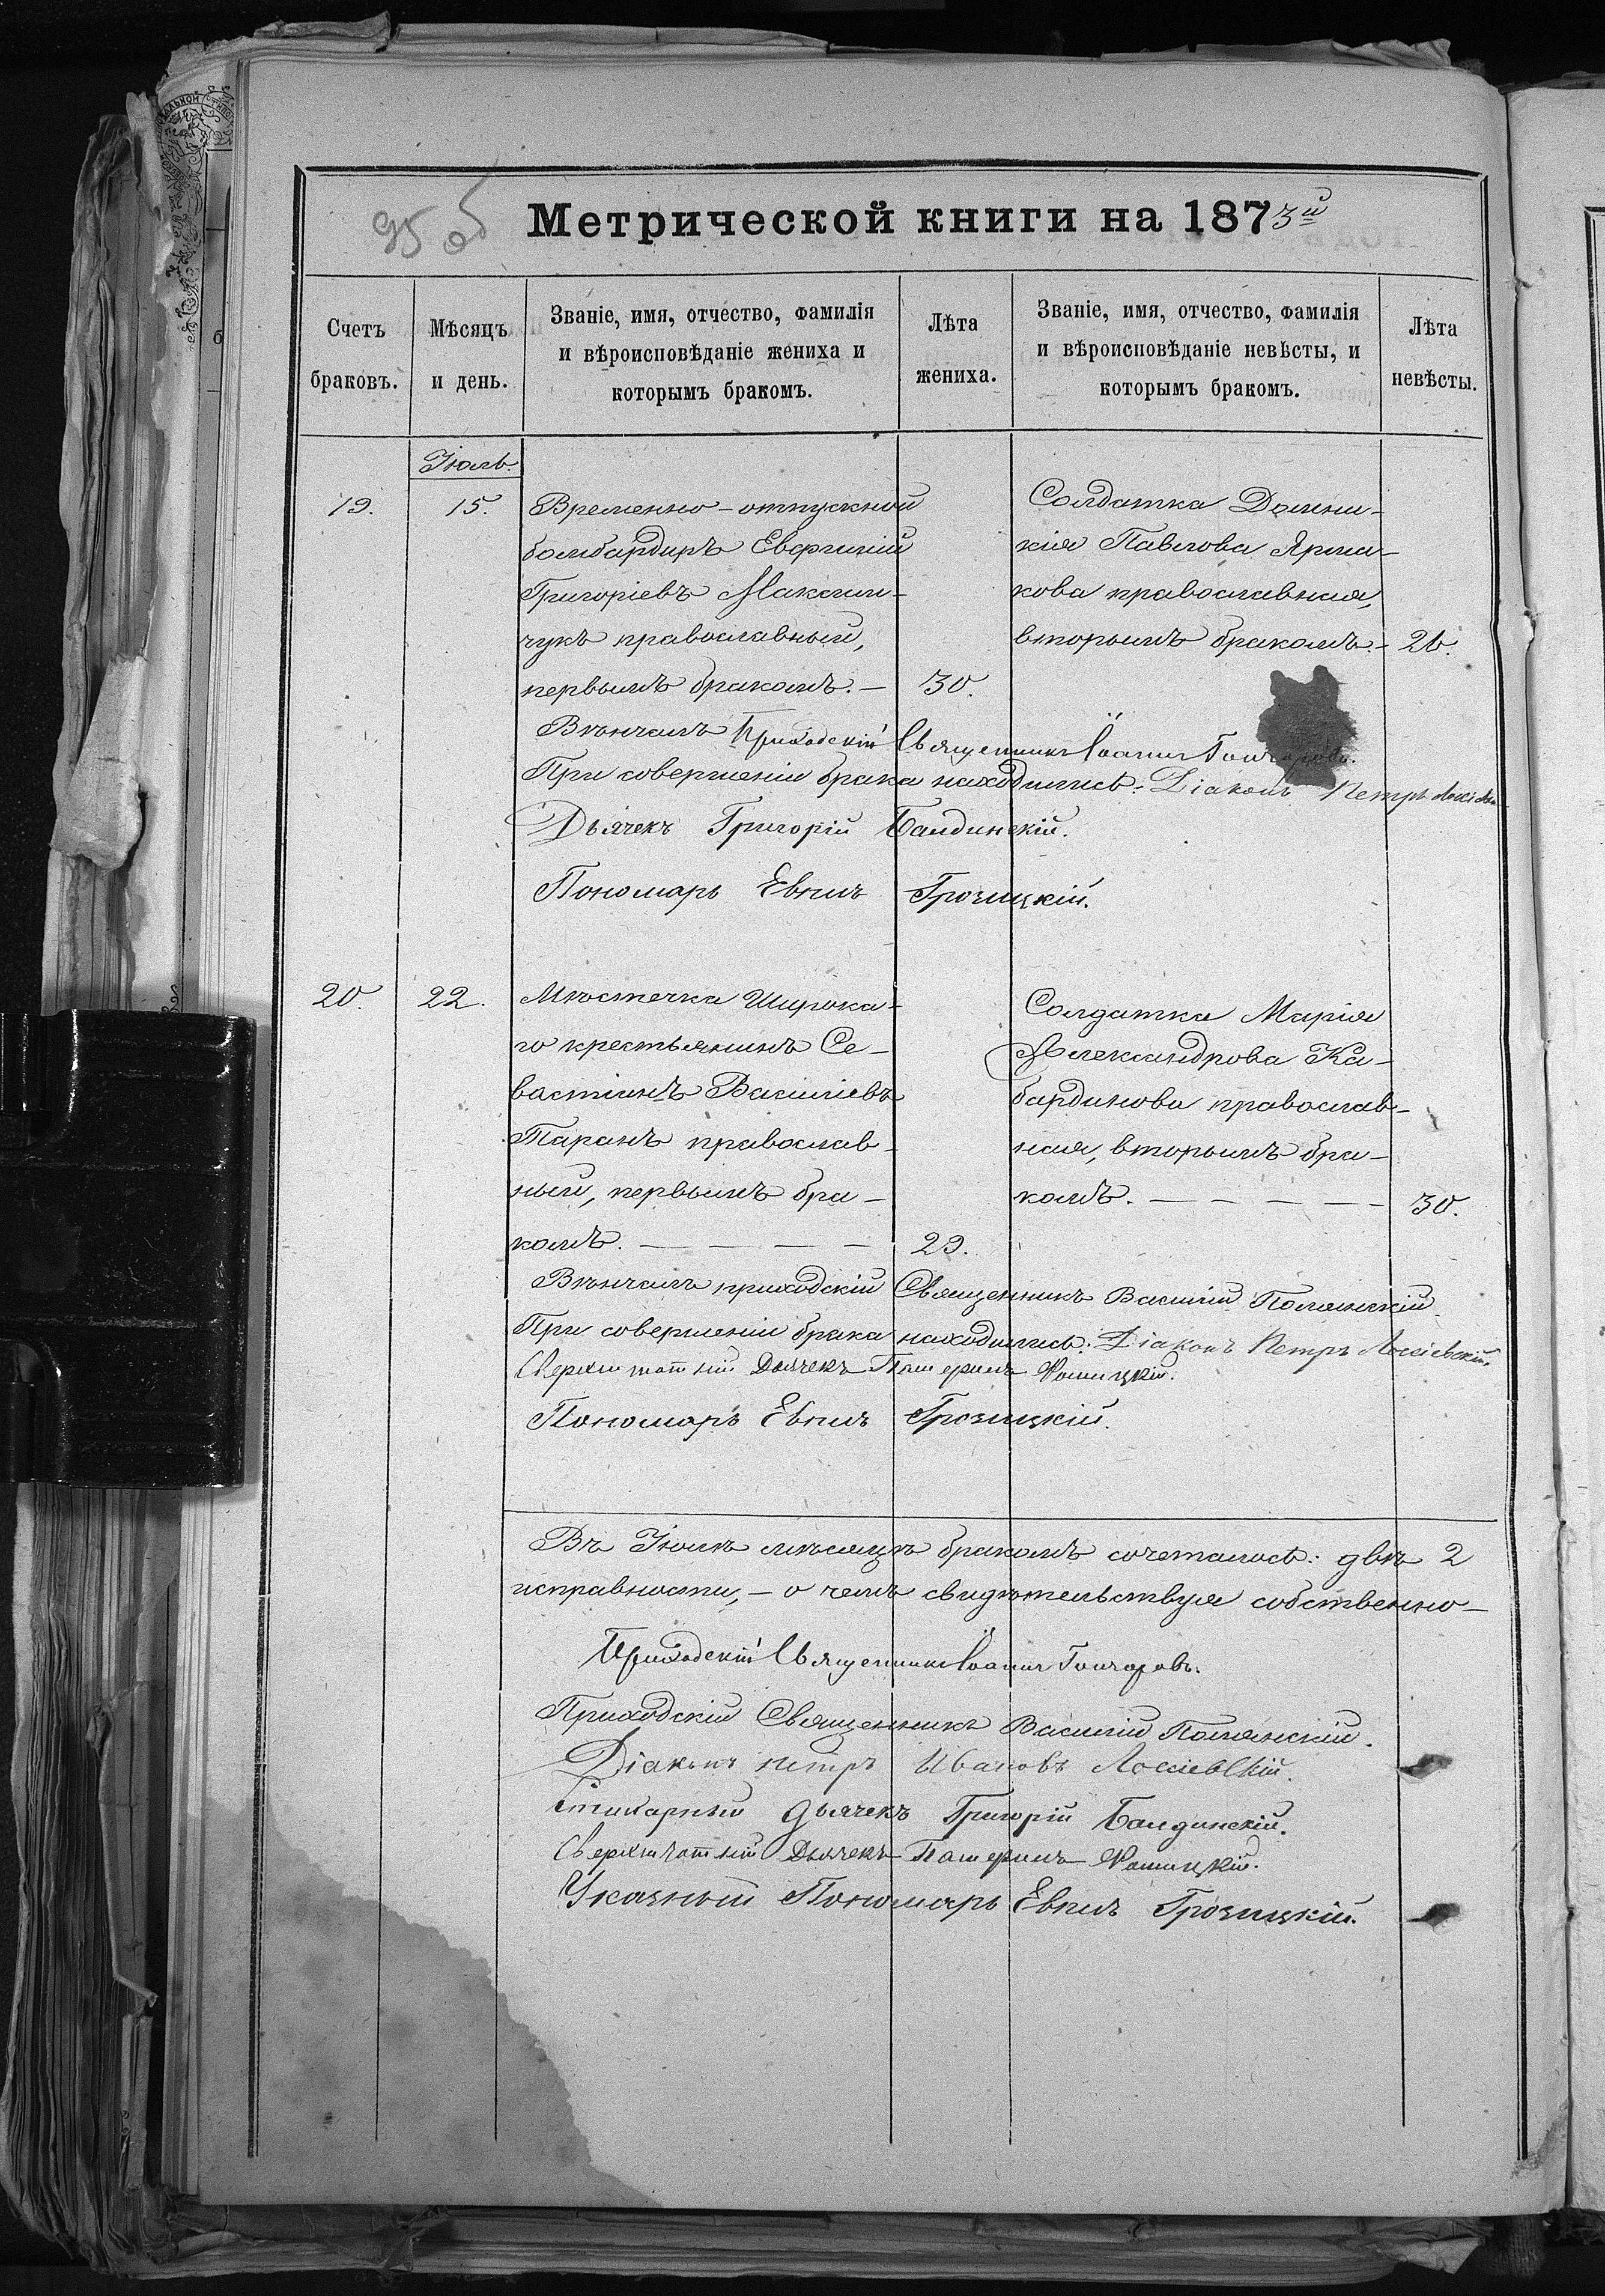 95 об
Метрической книги на 1873й
Счетъ браковъ.
Мѣсяцъ и день.
Званіе, имя, отчество, фамилія
и вѣроисповѣданіе жениха и
которымъ бракомъ.
Лѣта жениха.
Званіе, имя, отчество, фамилія
и вѣроисповѣданіе невѣсты, и
которымъ бракомъ.
Лѣта невѣсты.
Іюль.
19. 15.
Временно-отпускной
бомбардиръ Евфимій
Григоріевъ Максим-
чукъ православный,
первымъ бракомъ. — 30.
Солдатка Домни-
кія Павлова Ярма-
кова православная,
вторымъ бракомъ. - 26.
Вѣнчалъ Приходскій Священникъ Іоаннъ Гончаровъ.
При совершеніи брака находились: Діаконъ Петръ
Дьячекъ Григорій Балдинскій.
Пономарь Евѳимъ Грозицкій.
20. 22.
Мѣстечка Широка-
го крестьянинъ Се-
вастіанъ Василіевъ
Таранъ православ-
ный, первымъ бра-
комъ. — — — — 29.
Солдатка Марія
Александрова Ка-
бардинова православ-
ная, вторымъ бра-
комъ. — — — — 30.
Вѣнчалъ приходскій Священникъ Василій Полянскій.
При совершеніи брака находились: Діаконъ Петръ Лосіевскій.
Сверхштатный Дьячекъ
Пономарь Евѳимъ Грозицкій.
Въ Іюлѣ мѣсяцѣ бракомъ сочеталось: двѣ 2
исправности, — о чемъ свидѣтельствуя собственно-
Приходскій Священникъ Іоаннъ Гончаровъ.
Приходскій Священникъ Василій Полянскій.
Діаконъ Петръ Ивановъ Лосіевскій.
Стихарный дьячекъ Григорій Балдинскій.
Сверхштатный Дьячекъ
Указный Пономарь Евѳимъ Грозицкій.